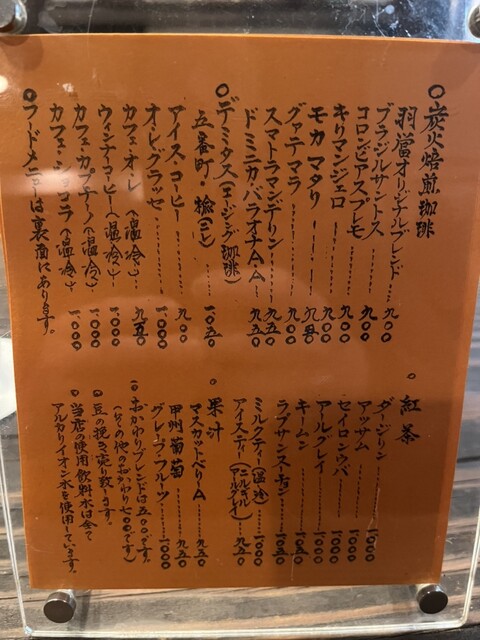 ○炭火焙煎珈琲
羽當オリジナルブレンド 九〇〇
ブラジルサントス 九〇〇
コロンビアスプレモ 九〇〇
キリマンジェロ 九〇〇
モカマタリ 九五〇
グァテマラ 九〇〇
スマトラマンデリン 九五〇
ドミニカ・バラオナA・A 九五〇
○デミタス(エージング珈琲)
五番町・檜 一〇五〇
アイス・コーヒー 九〇〇
オ・レ・グラッセ 一〇〇〇
カフェ・オ・レ(温・冷) 九五〇
ウィンナ・コーヒー(温・冷) 一〇〇〇
カフェ・カプチーノ(温・冷) 一〇〇〇
カフェ・ショコラ(温・冷) 一〇〇〇
○フードメニューは裏面にあります。
○紅茶
ダージリン 一〇〇〇
アッサム 一〇〇〇
セイロンウバ 一〇〇〇
アールグレイ 一〇〇〇
キームン 一〇五〇
ラプサンスーチョン 一〇五〇
ミルクティー(温・冷) 一〇〇〇
アイスティー(ニルギル アールグレイ) 九五〇
○果汁
マスカットベリーA 九五〇
甲州葡萄 九五〇
グレープフルーツ 一〇〇〇
○おかわりブレンドは五〇〇です。
(その他のおかわり七〇〇です)
○豆の挽き売り致します。
○当店の使用飲料水は全て
アルカリイオン水を使用しています。